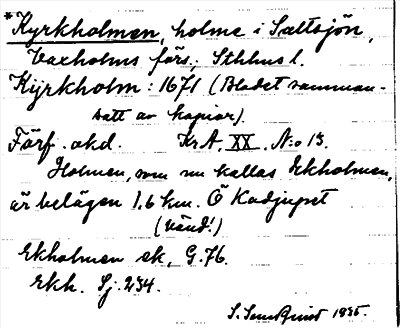 *Kyrkholmen, holme i Saltsjön,
Vaxholms förs., Sthhus l.
Kijrkholm: 1671 (Bladet samman-
satt av kopior).
Förf. okd. Kr A, XX, N:o 13.
Holmen, som nu kallas Ekholmen,
är belägen 1,6 km. Ö Kadjupet
(vänd!)
Ekholmen ek, G. 76.
Ekh. Sj. 234.
1935.